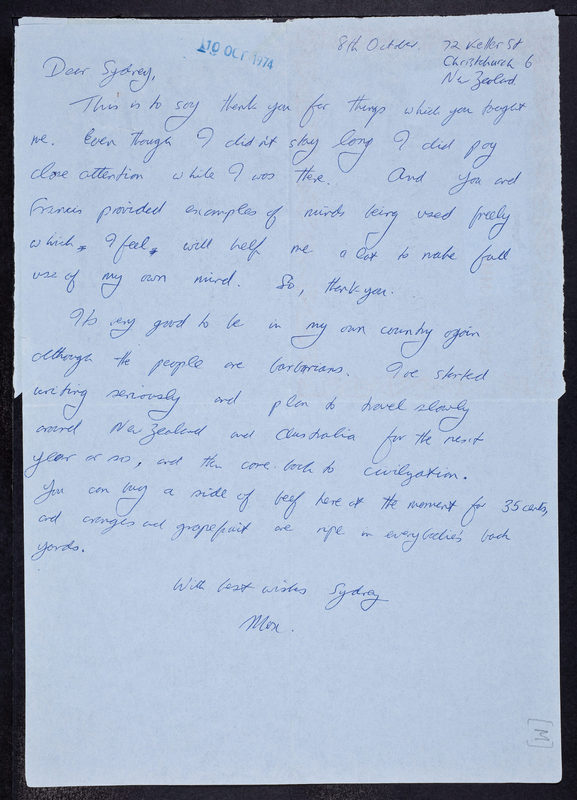 10 OCT 1974
8th October. 72 Keller St
Christchurch 6
New Zealand
Dear Sydney,
This is to say thank you for things which you taught
me. Even though I didn't stay long I did pay
close attention while I was there. And you and
Francis provided examples of minds being used freely
which, I feel, will help me a lot to make full
use of my own mind. So, thank you.
Its very good to be in my own country again
although the people are barbarians. I've started
writing seriously and plan to travel slowly
around New Zealand and Australia for the next
year or so, and then come back to civilization.
You can buy a side of beef here at the moment for 35 cents,
and oranges and grapefruit are ripe in everybodies back
yards.
With best wishes Sydney
Max.
[M]